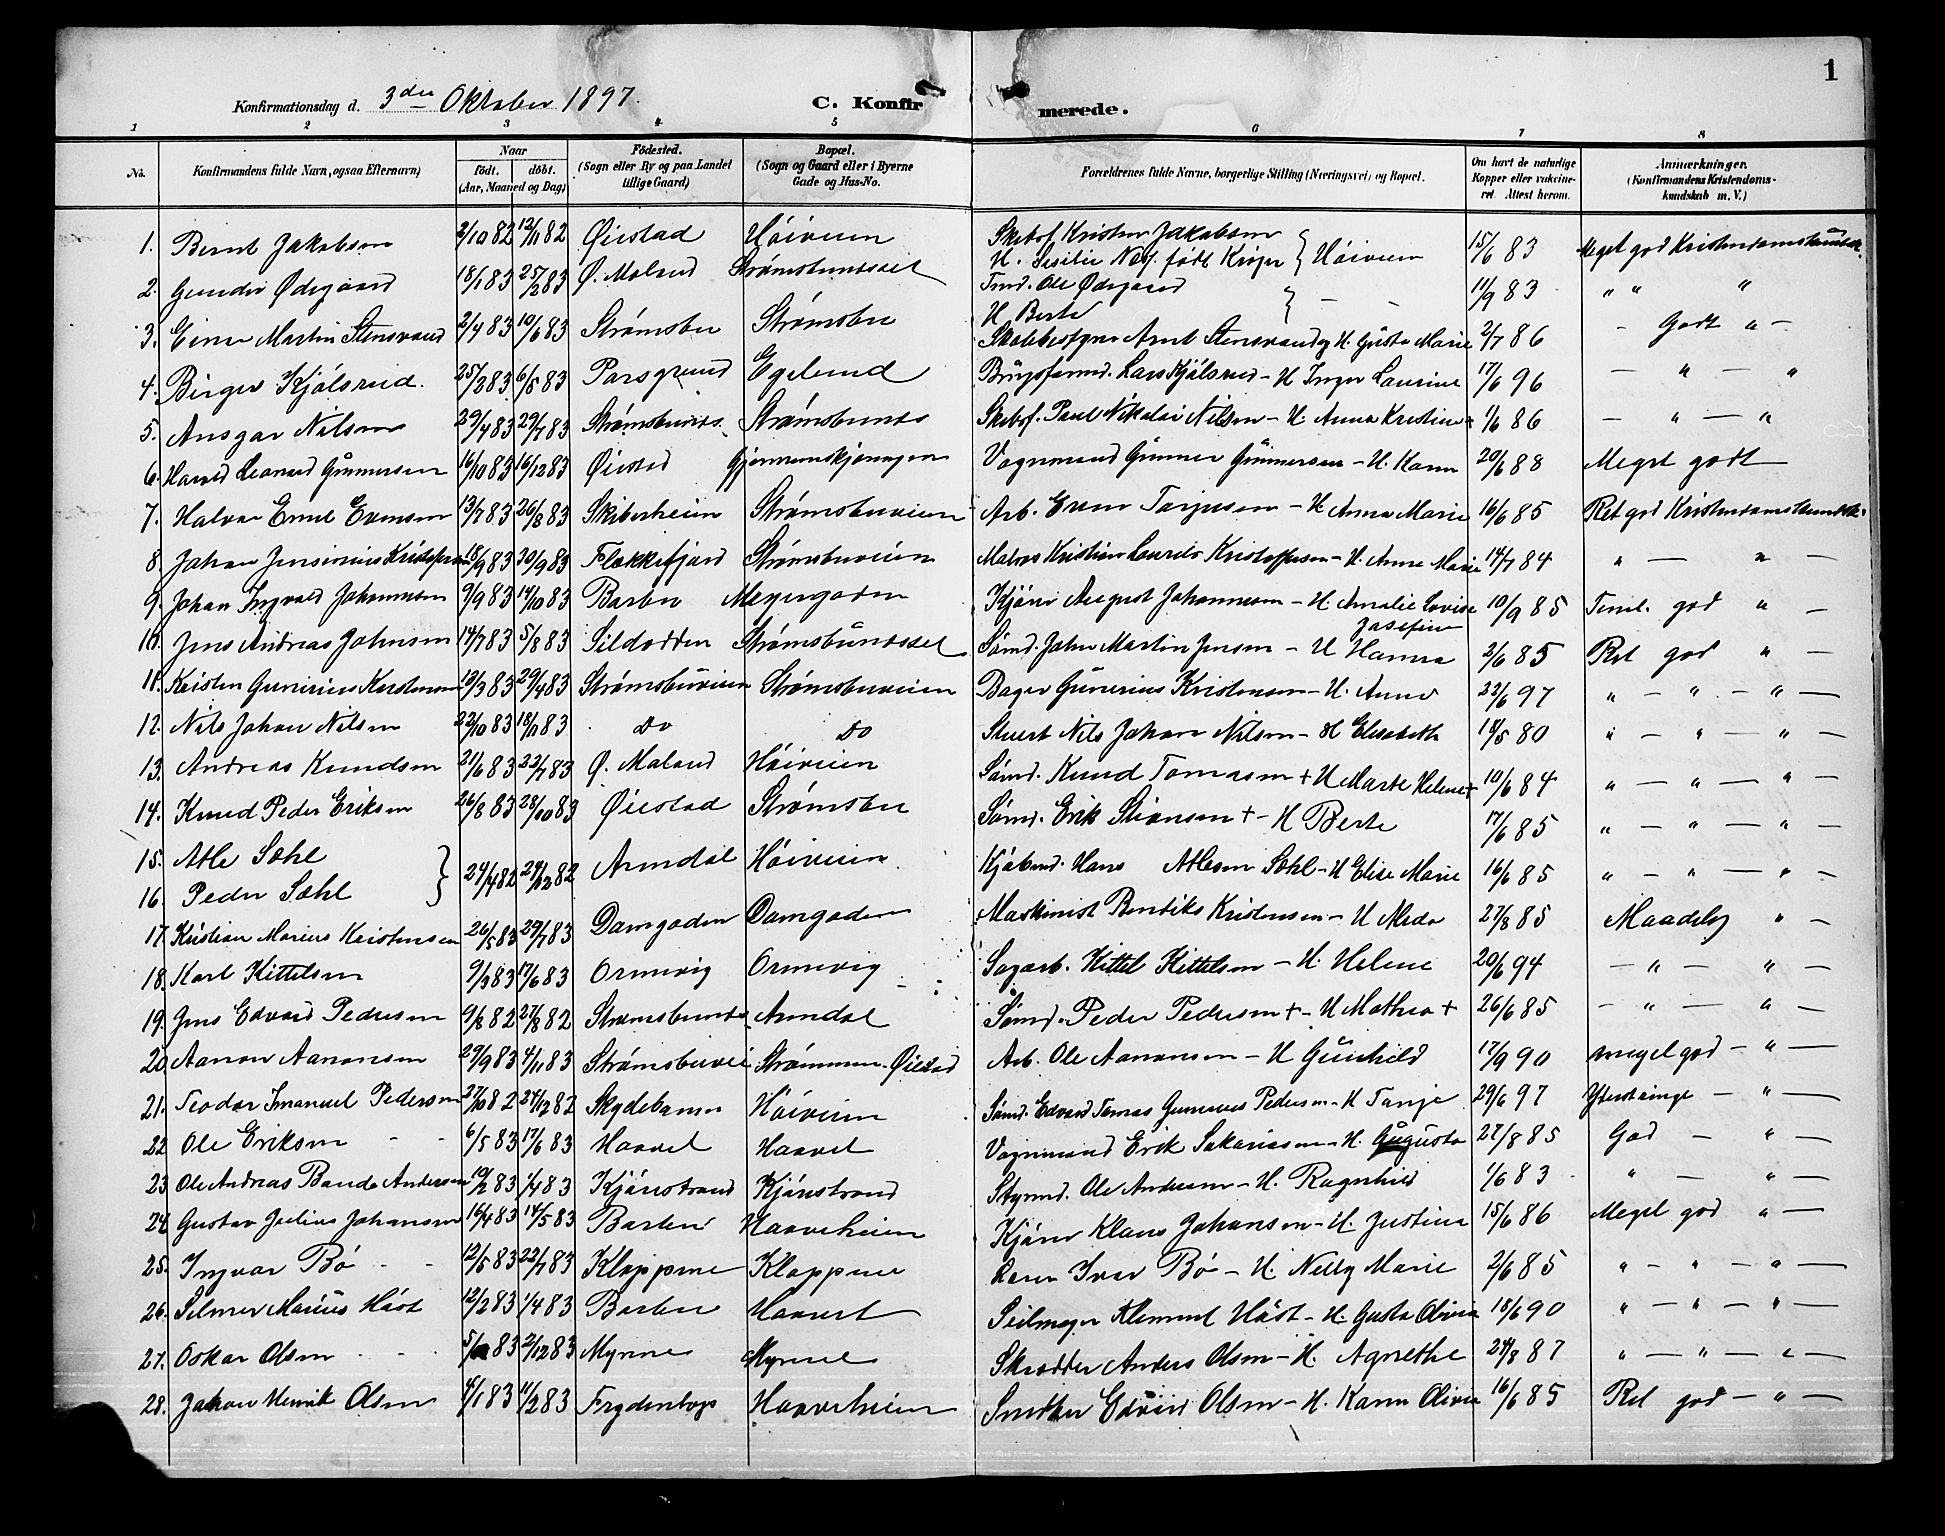 1
Konfirmationsdag d. 3die Oktober 1897. C. Konfirmerede.
1 2 3 4 5 6 7 8
No. Konfirmandens fulde Navn, ogsaa Efternavn) Naar født. døbt. (Aar, Maaned og Dag) Fødested. (Sogn eller By og paa Landet tillige Gaard) Bopæl. (Sogn og Gaard eller i Byerne Gade og Hus-No. Forældrenes fulde Navne, borgerlige Stilling (Næringsvei) og Bopæl. Om havt de naturlige Kopper eller vakcineret. Attest herom. Anmærkninger. (Konfirmandens Kristendomskundskab m. V.)
1. Bernt Jakobsen 2/10 82 12/11 82 Øiestad Høiveien Skibsf. Kristen Jakobsen H. Sesilie født Krøger } Høiveien 15/6 83 Meget god Kristendomskundsk.
2. Gunder Ødegaard 18/1 83 25/2 83 Ø. Moland Strømsbunesset Tmd. Ole Ødegaard H Berte } - - 11/9 83 " " "
3. Einar Martin Stensvand 2/4 83 10/6 83 Strømsbu Strømsbu Skolebestyrer Arnt Stensvand og H. Gusta Marie 2/7 86 - Godt " -
4. Birger Kjølsrud. 25/2 83 6/5 83 Porsgrund Egelund Brugsformd. Lars Kjølsrud - H Inger Laurine 17/6 96 - " - "
5. Ansgar Nilsen 29/4 83 29/7 83 Strømsbunes Strømsbunes Skibsf. Paul Nikolai Nilsen - H Anna Kristine 1/6 86 - " - "
6. Harald Leonard Gunnersen 16/10 83 16/12 83 Øiestad Gjennemskjæringen Vognmand Gunner Gunnersen - H. Karen 20/6 88 Meget godt
7. Halvor Emil Evensen 13/7 83 26/8 83 Skiberheien Strømsbuveien Arb. Even Torjusen - H Anna Marie 16/6 85 Ret god Kristendomskundsk.
8. Johan Jensenius Kristofersen 18/9 83 30/9 83 Flekkefjord Strømsbuveien Matros Kristian Laurits Kristoffersen - H. Anne Marie 14/7 84 " - " -
9. Johan Ingvald Johannesen 9/9 83 14/10 83 Barbu Meyergaden Kjører August Johannesen - H Amalie Lovise Josefine 10/9 85 Teml. god " -
10. Jens Andreas Johnsen 14/7 83 5/8 83 Sildodden Strømsbunesset Sømd. John Martin Jensen - H Hanna 2/6 85 Ret god " -
11. Kristen Gunerius Kristensen 10/3 83 29/4 83 Strømsbuveien Strømsbuveien Bager Gunerius Kristensen - H. Anne 22/6 97 " - " - " -
12. Nils Johan Nilsen 22/10 83 18/11 83 Do Do Stuert Nils Johan Nilsen - H Elisabeth 18/5 80 " - " - " -
13. Andreas Knudsen 21/6 83 22/7 83 Ø. Moland Høiveien Sømd. Knud Tomasen + H Marte Helene + 10/6 84 " - " - " -
14. Knud Peder Eriksen 26/8 83 28/10 83 Øiestad Strømsbu Sømd. Erik Stiansen + - H Berte 17/6 85 " - " - " -
15. Atle Sæhl
16. Peder Sæhl } 24/4 82 24/12 82 Arendal Høiveien Kjøbmd. Hans Atlesen Sæhl - H Elise Marie 16/6 85 " - " - " -
17. Kristian Marius Kristensen 26/5 83 29/7 83 Damgaden Damgaden Maskinist Bendiks Kristensen - H Meda 27/8 85 Maadelig " -
18. Karl Kittelsen 9/3 83 17/6 83 Ormevig Ormevig Sagarb. Kittel Kittelsen - H. Helene 20/6 94 - " - " -
19. Jens Edvard Pedersen 9/8 82 27/8 82 Strømsbunes Arendal Sømd. Peder Pedersen + - H Mathea + 26/6 85 - " - " -
20. Aanon Aanonsen 29/9 83 4/11 83 Strømsbuvei Strømmen. Øiestad Arb. Ole Aanonsen - H Gunhild 17/9 90 meget god - " -
21. Teodor Imanuel Pedersen 27/10 82 24/12 82 Skydebanen Høiveien Sømd. Edvard Tomas Gunerius Pedersen - H Tonje 29/6 97 Yderst ringe - " -
22 Ole Eriksen - - 6/5 83 17/6 83 Haavet Haavet Vognmand Erik Sakariasen - H. Gugusta 27/8 85 God - " -
23 Ole Andreas Bande Andersen 19/2 83 1/4 83 Kjønstrand Kjønstrand Styrmd. Ole Andersen - H. Ragnhild 1/6 83 " - " -
24. Gustav Julius Johansen 16/4 83 14/5 83 Barbu Haaveheien Kjører Klaus Johansen - H. Justine 15/6 86 Meget god " -
25. Ingvar Bø - - 12/5 83 22/7 83 Kloppene Kloppene Ivar Bø - H. Nelly Marie 2/6 85 " - " - " -
26. Selmer Marius Høst 12/2 83 1/4 83 Barbu Haavet Seilmager Klement Høst - H. Gusta Olivia 18/6 90 " - " - " -
27. Oskar Olsen - - - 5/10 83 2/12 83 Myrene Myrene Skrædder Anders Olsen - H. Agnethe 24/8 87 " - " - " -
28. Johan Henrik Olsen 4/1 83 11/2 83 Frydenborg Haaveheien Smed Edvard Olsen - H. Karen Olivie 16/6 85 Ret god - " -